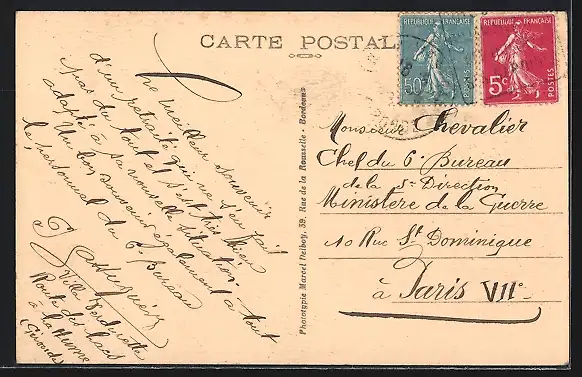 CARTE POSTALE
REPUBLIQUE FRANÇAISE
50c
POSTES
REPUBLIQUE FRANÇAISE
5c
POSTES
Le meilleur souvenir
d'un retraité qui ne s'en fait
pas du tout et s'est très bien
adapté à sa nouvelle situation.
Un bon souvenir également à tout
le personnel du 6e Bureau
Villa
Route des Lacs
à La Hume
(Gironde)
Phototypie Marcel Delboy, 39, Rue de la Rousselle - Bordeaux
Monsieur Chevalier
Chef du 6e Bureau
de la 5e Direction
Ministère de la Guerre
10 Rue St Dominique
à Paris VIIe